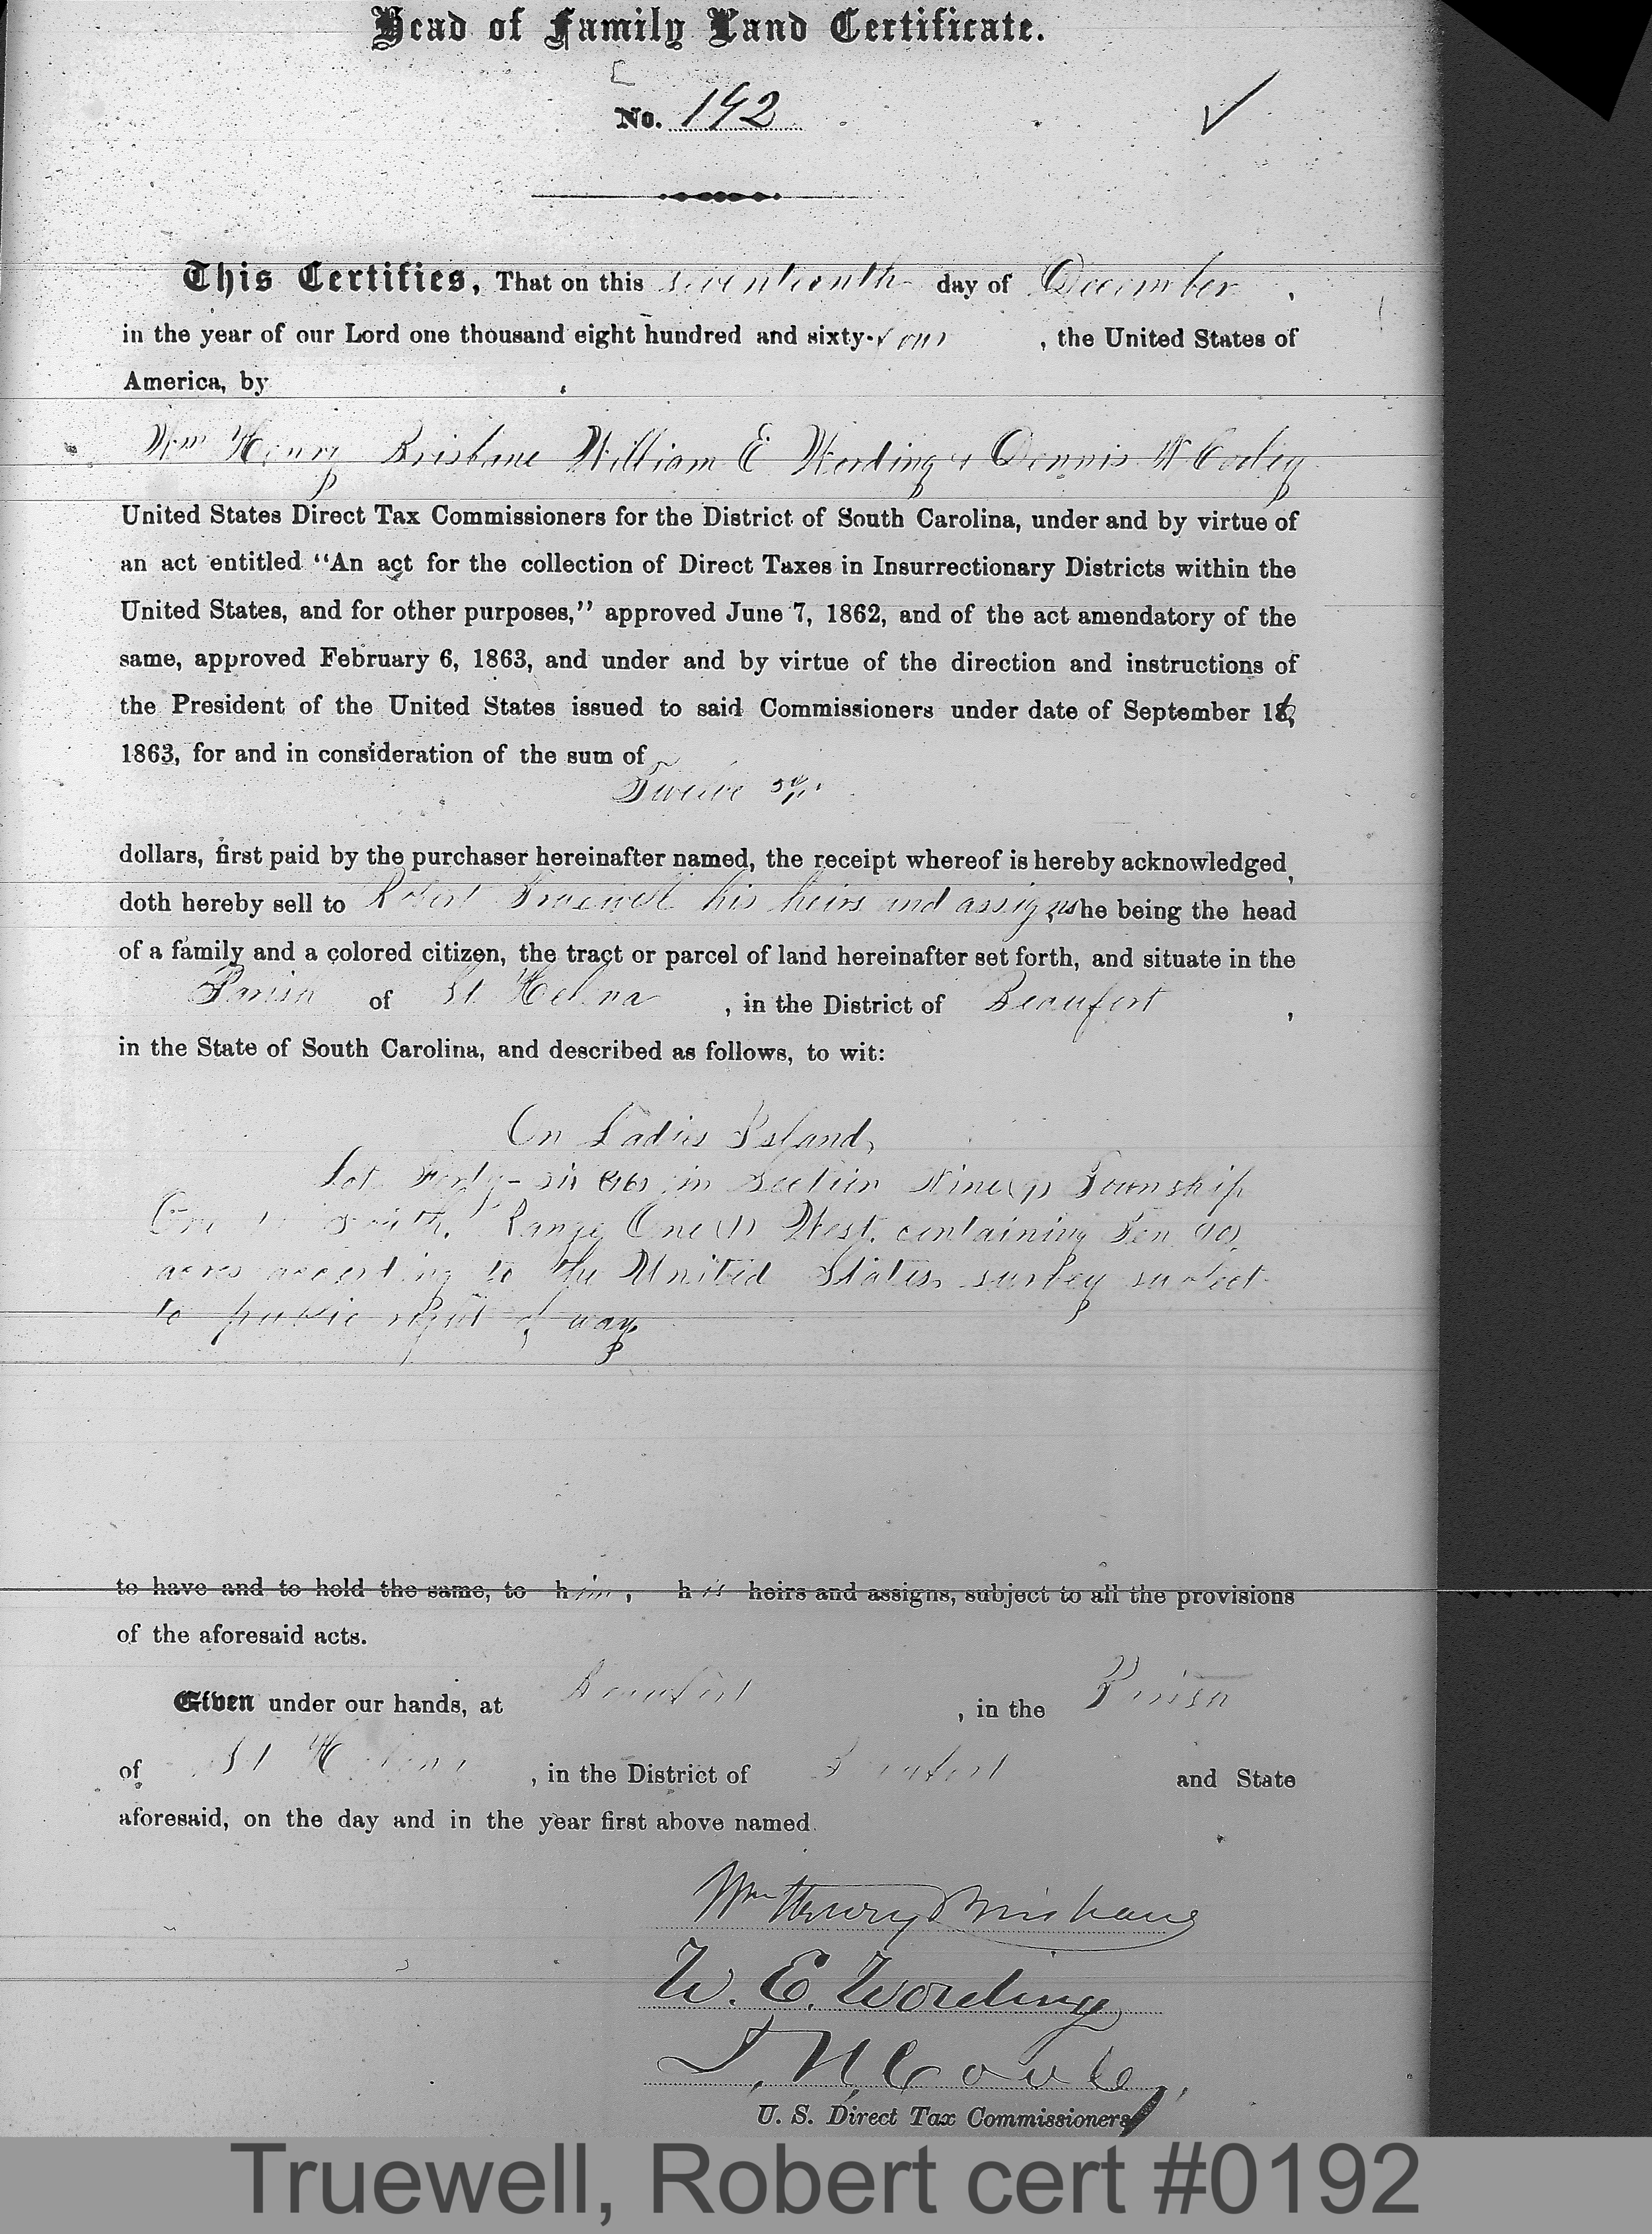 Head of Family Land Certificate.
No. 192
This Certifies, That on this seventeenth day of December,
in the year of our Lord one thousand eight hundred and sixty-four, the United States of
America, by
Wm Henry Brisbane William E Wording & Dennis N Cooley
United States Direct Tax Commissioners for the District of South Carolina, under and by virtue of
an act entitled “An act for the collection of Direct Taxes in Insurrectionary Districts within the
United States, and for other purposes,” approved June 7, 1862, and of the act amendatory of the
same, approved February 6, 1863, and under and by virtue of the direction and instructions of
the President of the United States issued to said Commissioners under date of September 16,
1863, for and in consideration of the sum of
Twelve
dollars, first paid by the purchaser hereinafter named, the receipt whereof is hereby acknowledged,
doth hereby sell to Robert Truewell his heirs and assigns he being the head
of a family and a colored citizen, the tract or parcel of land hereinafter set forth, and situate in the
Parish of St Helena, in the District of Beaufort,
in the State of South Carolina, and described as follows, to wit:
On Ladies Island,
Lot Forty-six (46) in Section Nine (9) Township
One (1) South, Range One (1) West, containing Ten (10)
acres according to the United States survey subject
to public right of way
to have and to hold the same, to him, his heirs and assigns, subject to all the provisions
of the aforesaid acts.
Given under our hands, at Beaufort, in the Parish
of St Helena, in the District of Beaufort and State
aforesaid, on the day and in the year first above named.
Wm Henry Brisbane
W. E. Wording
D. N. Cooley,
U. S. Direct Tax Commissioners
Truewell, Robert cert #0192